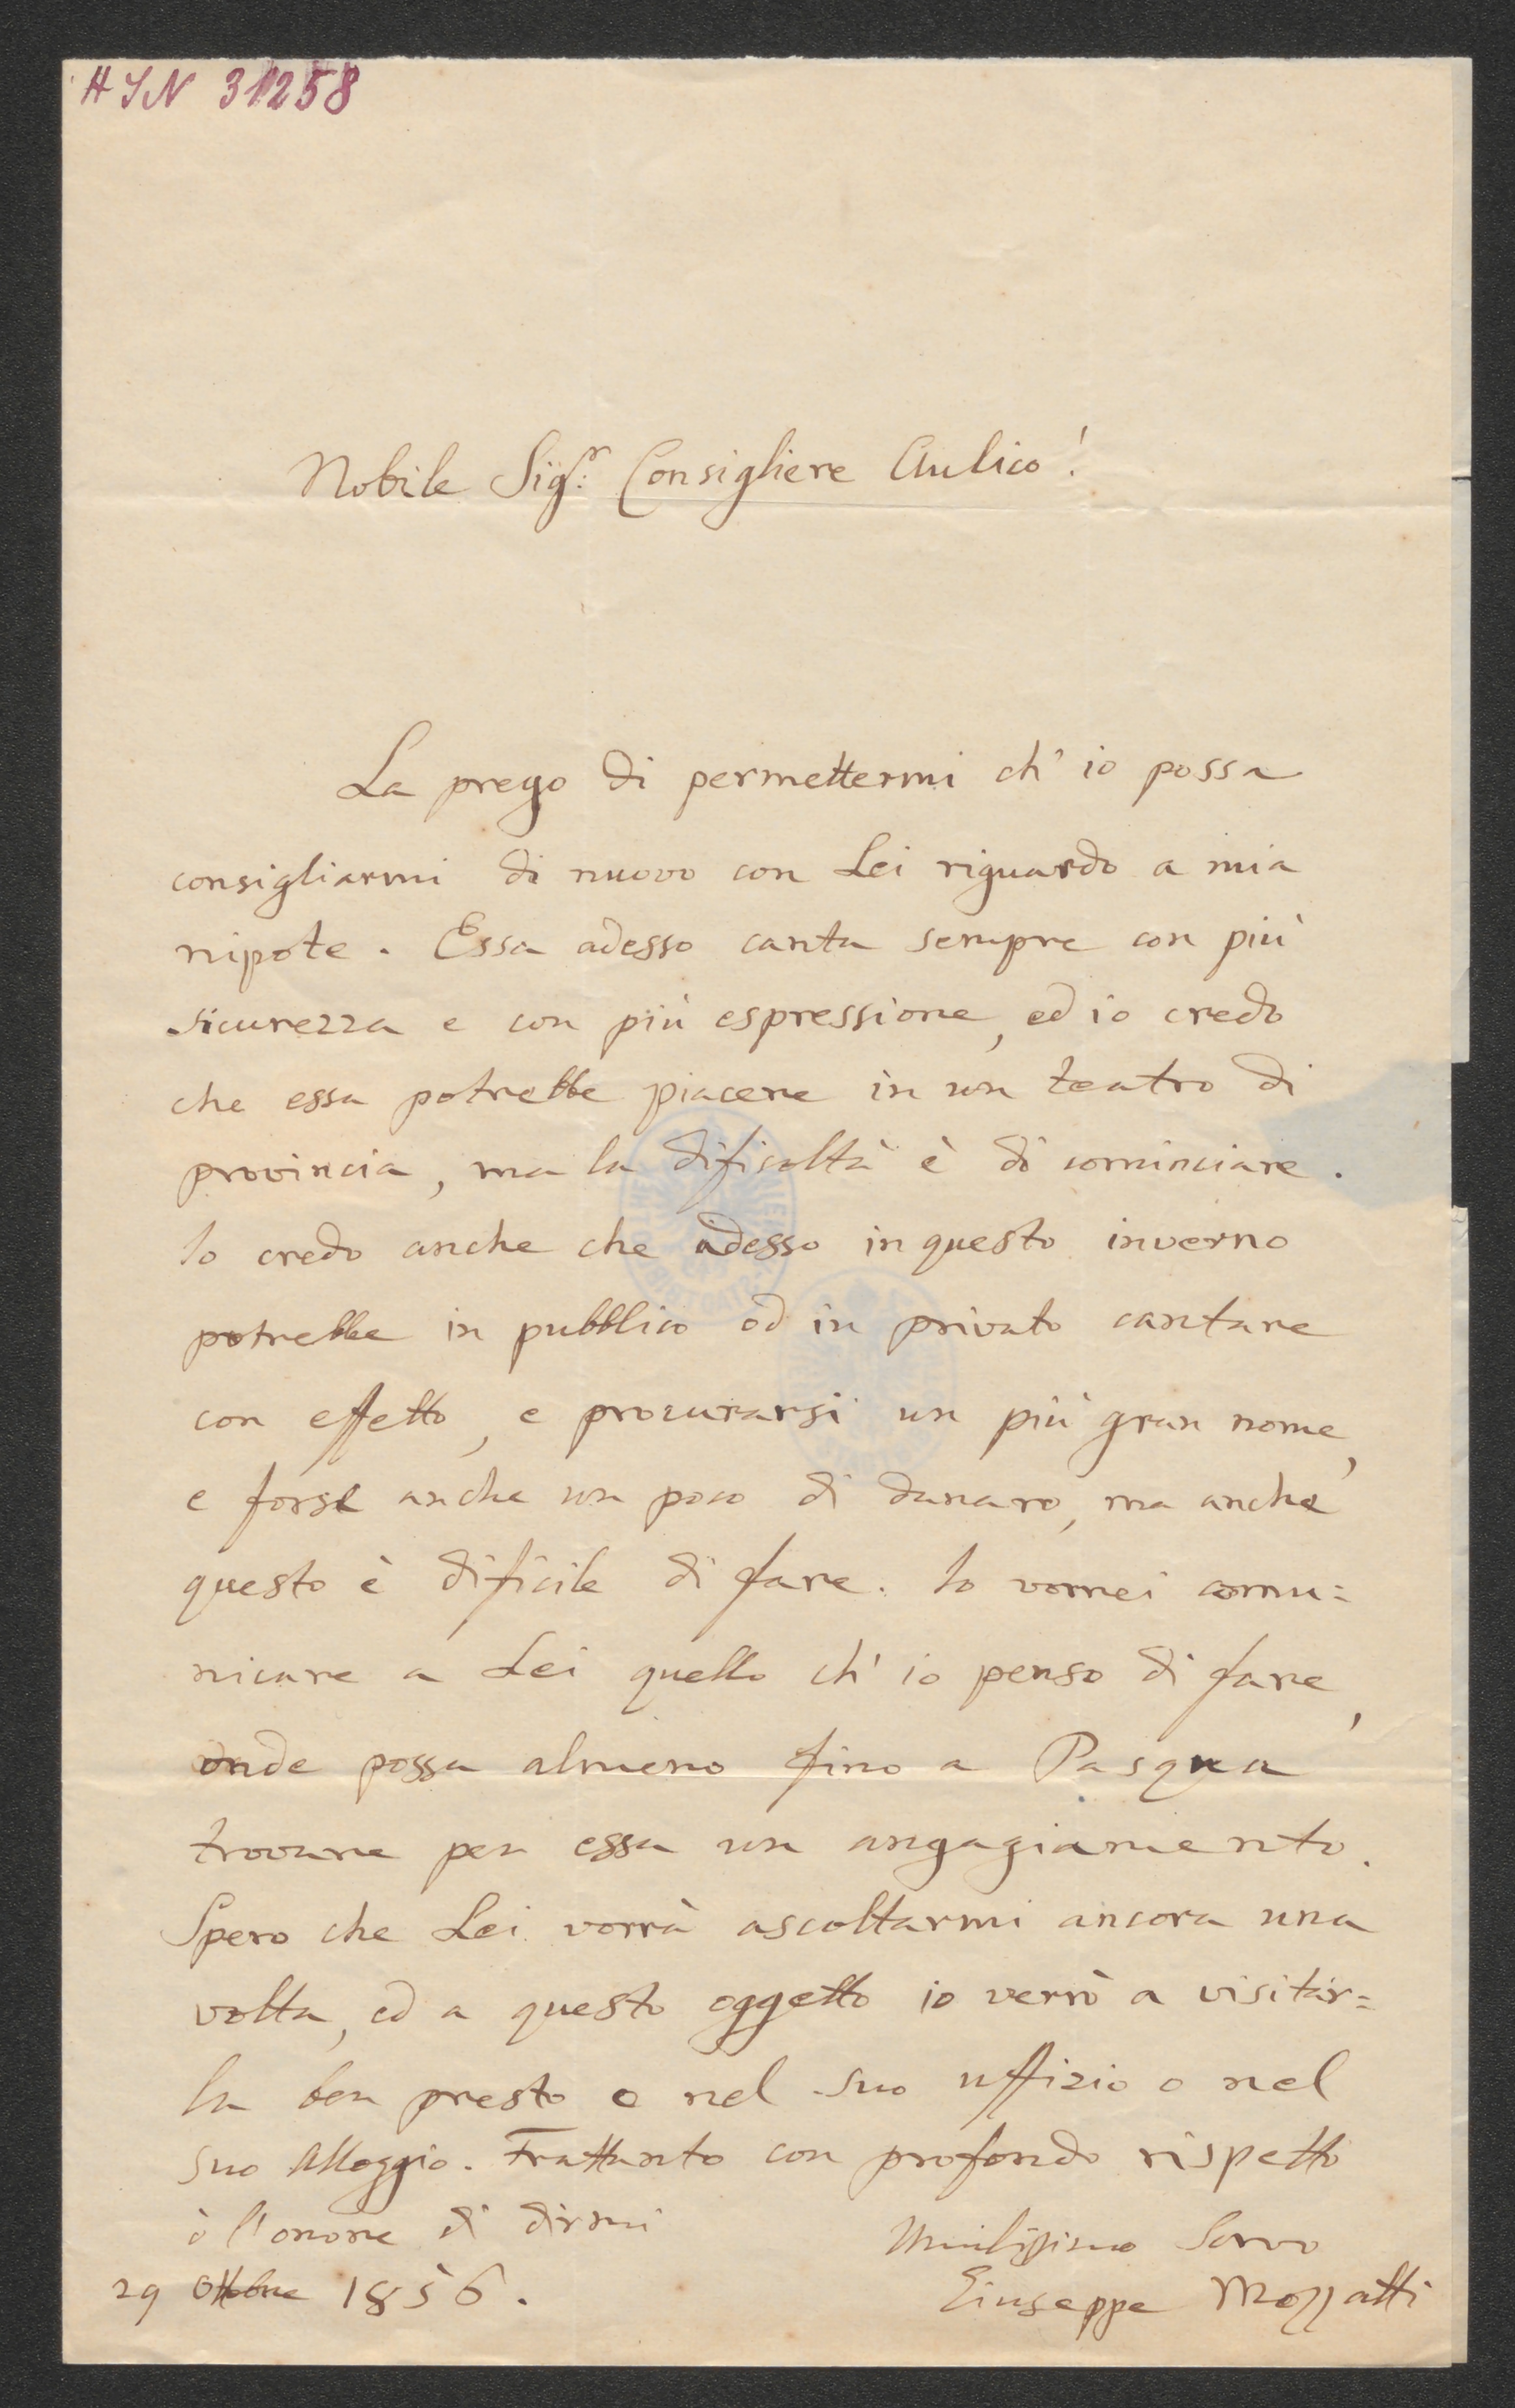 HIN 31258
Nobile Sigr. Consigliere Aulico!
La prego di permettermi ch' io possa
consigliarmi di nuovo con Lei riguardo a mia
nipote. Essa adesso canta sempre con più
sicurezza e con più espressione, ed io credo
che essa potrebbe piacere in un teatro di
provincia, ma la dificoltà è di cominciare.
Io credo anche che adesso in questo inverno
potrebbe in pubblico od in privato cantare
con effetto, e procurarsi un più gran nome,
e forse anche un poco di danaro, ma anche
questo è dificile di fare. Io vorrei comu=
nicare a Lei quello ch' io penso di fare,
onde possa almeno fino a Pasqua
trovare per essa un angagiamento.
Spero che Lei vorrà ascoltarmi ancora una
volta, ed a questo oggetto io verrò a visitar=
la ben presto o nel suo uffizio o nel
suo Alloggio. Frattanto con profondo rispetto
ò l'onore di dirmi
Umilissimo Servo
29 Ottobre 1856.
Giuseppe Mozzatti